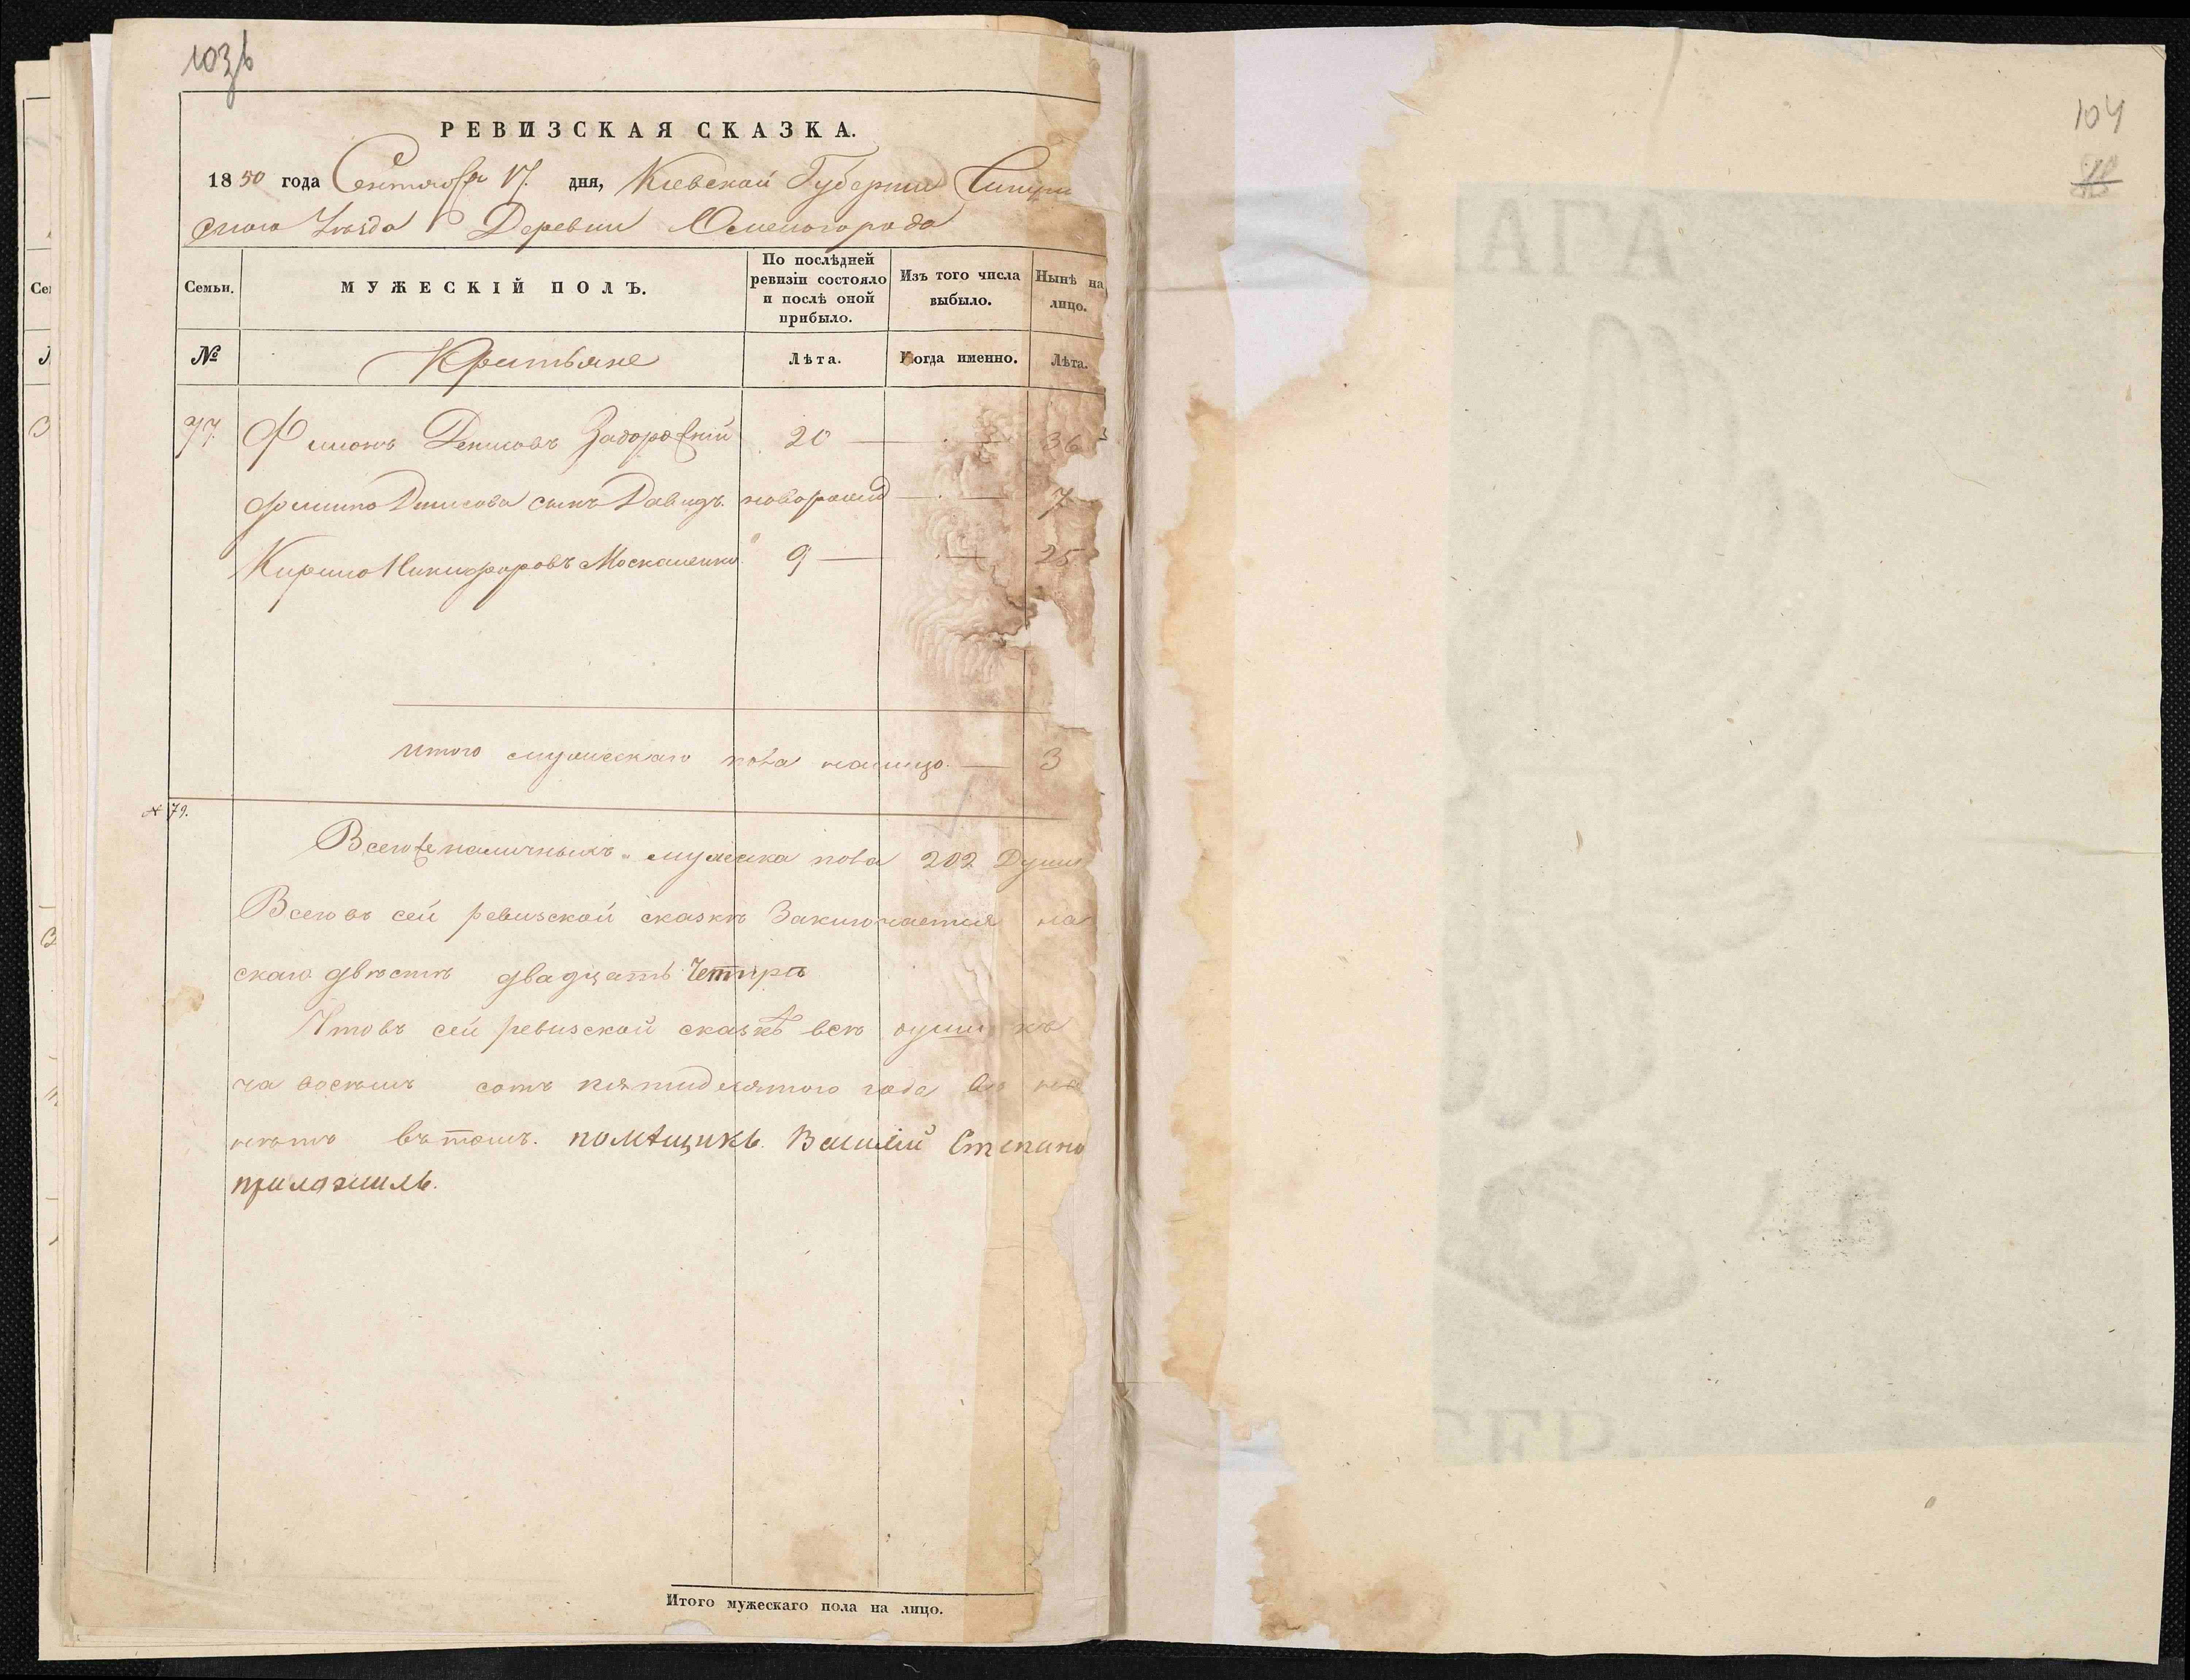 103б
РЕВИЗСКАЯ СКАЗКА.
1850 года Сентября 17. дня, Кіевской Губерніи
скаго Уезда Деревни
Семьи.
МУЖЕСКІЙ ПОЛЪ.
По послѣдней ревизіи состояло и послѣ оной прибыло.
Изъ того числа выбыло.
Нынѣ на лицо.
№
Крестьяне
Лѣта.
Когда именно.
Лѣта.
77 Филипъ Денисовъ 20 36
Филипа Денисова сынъ Давидъ. новорожд 7
Кирило Никифоровъ Москаленко 9 25
итого мужескаго пола налицо. 3
№ 79.
Всего наличныхъ мужеска пола 202 Души
Всего въ сей ревизской сказкѣ Заключается на
скаго двѣстѣ двадцать Четыре
Что въ сей ревизской сказкѣ всѣ души къ
ча восемь сотъ пятидесятого года
въ томъ. помѣщикъ. Василій Степано
приложилъ.
Итого мужескаго пола на лицо.
104